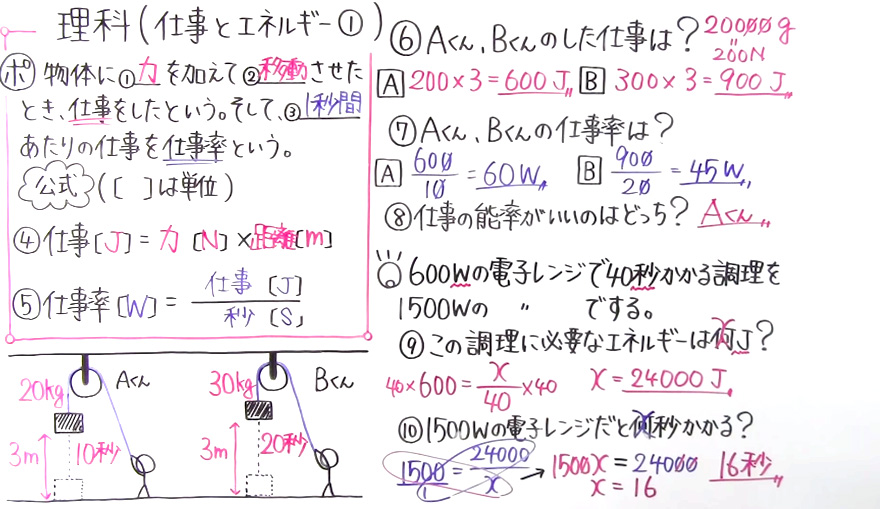 理科(仕事とエネルギー①)
ポ 物体に①力を加えて②移動させた
とき、仕事をしたという。そして、③1秒間
あたりの仕事を仕事率という。
公式([ ]は単位)
④仕事[J]=力[N]×距離[m]
⑤仕事率[W]=仕事[J]/秒[S]
20kg Aくん
3m 10秒
30kg Bくん
3m 20秒
⑥Aくん、Bくんのした仕事は? 20000g
"
200N
A 200×3=600J〃 B 300×3=900J〃
⑦Aくん、Bくんの仕事率は?
A 600/10=60W〃 B 900/20=45W〃
⑧仕事の能率がいいのはどっち? Aくん〃
600Wの電子レンジで40秒かかる調理を
1500Wの 〃 でする。
⑨この調理に必要なエネルギーは何J? x
40×600=x/40×40 x=24000J〃
⑩1500Wの電子レンジだと何秒かかる? x
1500/1=24000/x→1500x=24000 16秒〃
x=16